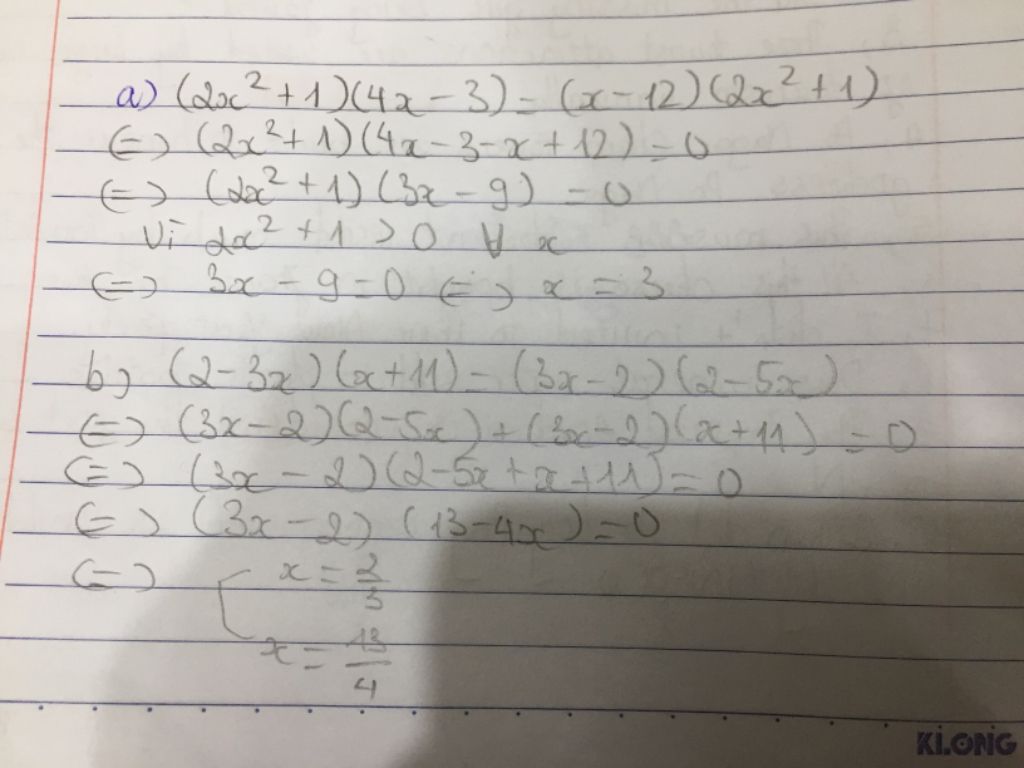 a) (2x² + 1)(4x - 3) = (x - 12)(2x² + 1)
⇔ (2x² + 1)(4x - 3 - x + 12) = 0
⇔ (2x² + 1)(3x - 9) = 0
Vì 2x² + 1 > 0 ∀ x
⇔ 3x - 9 = 0 ⇔ x = 3
b) (2 - 3x)(x + 11) = (3x - 2)(2 - 5x)
⇔ (3x - 2)(2 - 5x) + (3x - 2)(x + 11) = 0
⇔ (3x - 2)(2 - 5x + x + 11) = 0
⇔ (3x - 2)(13 - 4x) = 0
⇔ [ x = 2/3
x = 13/4
KLONG